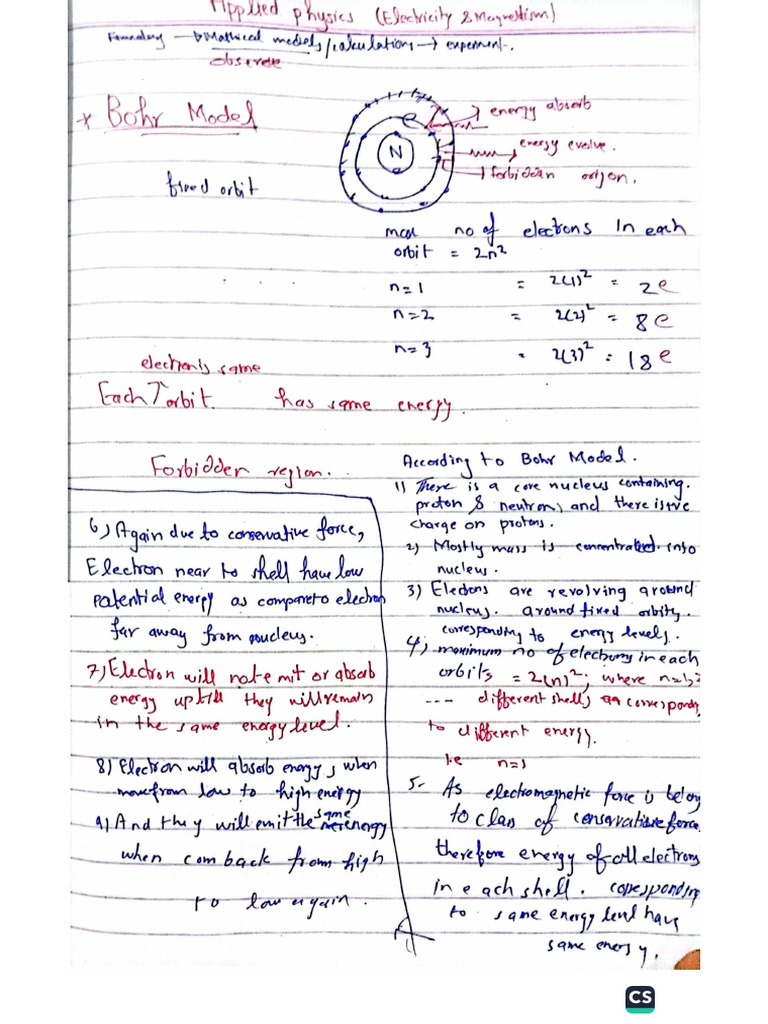 Applied physics (Electricity & Magnetism)
→ Mathical models/calculations → experiment.
observe
* Bohr Model
e
N
energy absorb
energy evolve.
forbidden orijon.
fixed orbit
max no of electrons in each
orbit = 2n²
n=1 = 2(1)² = 2e
n=2 = 2(2)² = 8e
n=3 = 2(3)² = 18e
electron's same
Each orbit has same energy.
Forbidden region.
According to Bohr Model.
1) There is a core nucleus containing.
proton & neutron, and there is +ve
charge on protons.
2) Mostly mass is concentrated into
nucleus.
3) Electrons are revolving around
nucleus. around fixed orbits.
corresponding to energy levels.
4) maximum no of electrons in each
orbits = 2(n)², where n=1,2
--- different shells correspondy
to different energy.
i.e n=1
5- As electromagnetic force is belong
to class of conservative force.
therefore energy of all electrons
in each shell. corresponding
to same energy level have
same energy.
6) Again due to conservative force,
Electron near to shell have low
potential energy as compare to electron
far away from nucleus.
7) Electron will not emit or absorb
energy uptill they will remain
in the same energy level.
8) Electron will absorb energy, when
move from low to high energy
9) And they will emit the same energy
when com back from high
to low again.
CS